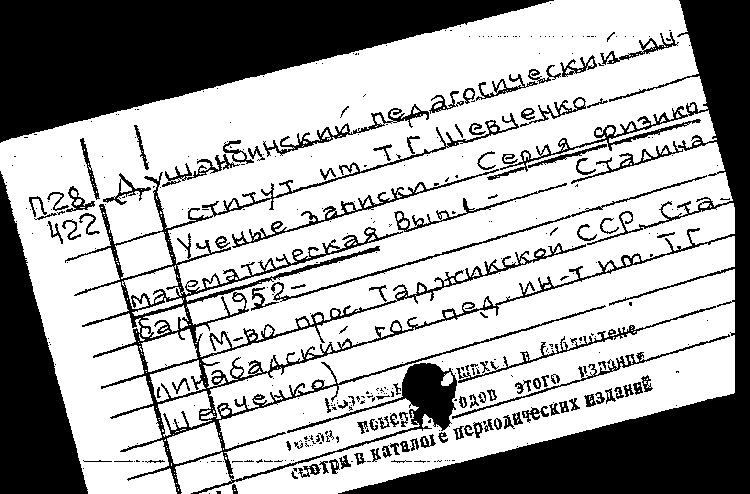 Душанбинский педагогический ин-
П28 ститут им. Т.Г. Шевченко.
422 Ученые записки... Серия физико-
математическая Вып. 1 - Сталина-
бад, 1952-
(М-во прос. Таджикской ССР. Ста-
линабадский гос. пед. ин-т им. Т.Г.
Шевченко)
в библиотеке
томов, номеров годов этого издания
смотри в каталоге периодических изданий